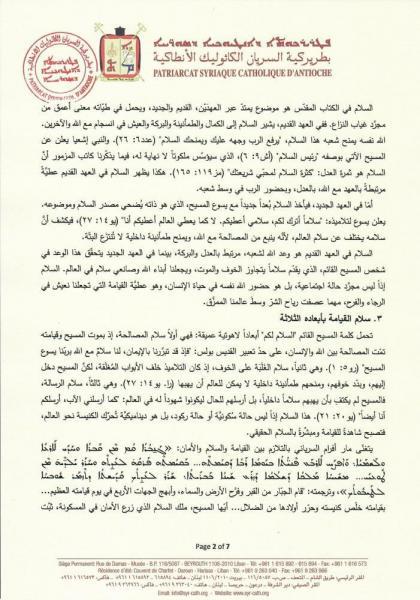 بطريركية السريان الكاثوليك الأنطاكية
PATRIARCAT SYRIAQUE CATHOLIQUE D'ANTIOCHE
السلام في الكتاب المقدّس هو موضوع يمتدّ عبر العهدَين، القديم والجديد، ويحمل في طيّاته معنى أعمق من
مجرّد غياب النزاع. ففي العهد القديم، يشير السلام إلى الكمال والطمأنينة والبركة والعيش في انسجام مع الله والآخرين.
الله نفسه يمنح شعبه هذا السلام، "يرفع الرب وجهه عليك ويمنحك السلام" (عدد٦: ٢٦). والنبي إشعيا يعلن عن
المسيح الآتي بوصفه "رئيس السلام" (أش٩: ٦)، الذي سيؤسّس ملكوتاً لا نهاية له، فيما يذكّرنا كاتب المزمور أنّ
السلام هو ثمرة العدل: "كثرة السلام لمحبّي شريعتك" (مز١١٩: ١٦٥). هكذا يظهر السلام في العهد القديم عطيّةً
مرتبطةً بالعهد مع الله، بالعدل، وبحضور الرب في وسط شعبه.
أمّا في العهد الجديد، فيأخذ السلام بُعداً جديداً مع يسوع المسيح، الذي هو ذاته يُضحي مصدر السلام وموضوعه.
يعلن يسوع لتلاميذه: "سلاماً أترك لكم، سلامي أعطيكم. لا كما يعطي العالم أعطيكم أنا" (يو١٤: ٢٧)، فيكشف أنّ
سلامه يختلف عن سلام العالم، لأنّه ينبع من المصالحة مع الله، ويمنح طمأنينة داخلية لا تُنتزَع البتّة.
السلام في العهد القديم هو وعد الله لشعبه، مرتبط بالعدل والبركة، بينما في العهد الجديد يتحقّق هذا الوعد في
شخص المسيح القائم، الذي يقدّم سلاماً يتجاوز الخوف والموت، ويجعلنا أبناء الله وصانعي سلام في العالم. السلام
إذاً ليس مجرّد حالة اجتماعية، بل هو حضور الله نفسه في حياة الإنسان، وهو عطيّة القيامة التي تجعلنا نعيش في
الرجاء والفرح، مهما عصفت رياح الشرّ وسط عالمنا الممزَّق.
٣. سلام القيامة بأبعاده الثلاثة
تحمل كلمة المسيح القائم "السلام لكم" أبعاداً لاهوتية عميقة: فهي أولاً سلام المصالحة، إذ بموت المسيح وقيامته
تمّت المصالحة بين الله والإنسان، على حدّ تعبير القديس بولس: "فإذ قد تبرّرنا بالإيمان، لنا سلامٌ مع الله بربّنا يسوع
المسيح" (رو٥: ١). وهي ثانياً، سلام الغلبة على الخوف، إذ كان التلاميذ خلف الأبواب المغلَقة، لكنّ المسيح دخل
إليهم، وبدّد خوفهم، ومنحهم طمأنينة داخلية لا يمكن للعالم أن يهبها (را. يو١٤: ٢٧). وهي ثالثاً، سلام الرسالة،
فالمسيح لم يكتفِ بأن يهبهم سلاماً داخلياً، بل أرسلهم للعالم ليكونوا شهوداً له في العالم: "كما أرسلني الآب، أرسلكم
أنا أيضاً" (يو٢٠: ٢١). هذا السلام إذاً ليس حالة سكونيّة أو حالة ركود، بل هو ديناميكيّة تُحرّك الكنيسة نحو العالم،
فتصبح شاهدةً للقيامة ومبشّرةً بالسلام الحقيقي.
يتغنّى مار أفرام السرياني بالتلازم بين القيامة والسلام والأمان:
وترجمته: "قام الجبّار من القبر وفرّح الأرض والسماء، وأبهج الجهات الأربع في يوم قيامته العظيم...
بقيامته خلّص كنيسته وحرّر أولادها من الضلال... أيّها المسيح، ملك السلام الذي زرع الأمان في المسكونة، ثبّت
Page 2 of 7